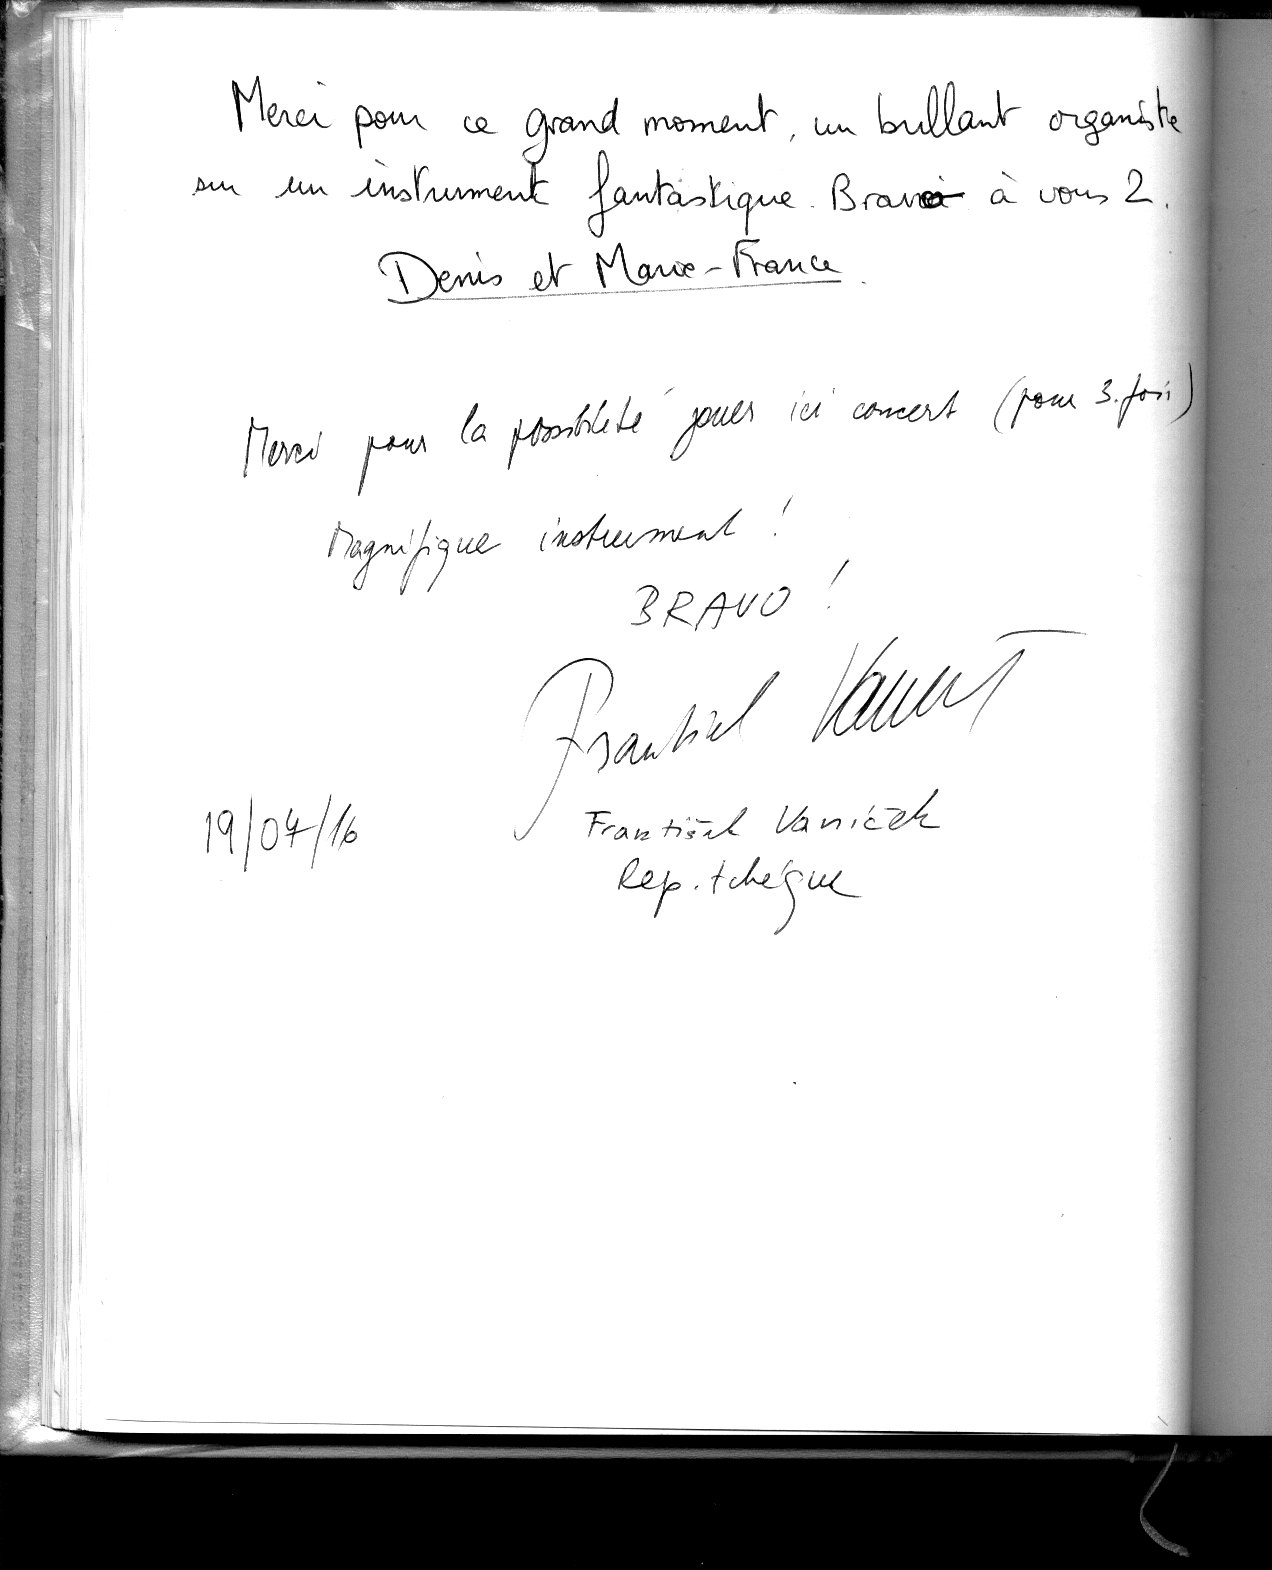 Merci pour ce grand moment, un brillant organiste
sur un instrument fantastique. Bravo à vous 2.
Denis et Marie-France.
Merci pour la possibilité jouer ici concert (pour 3. fois)
Magnifique instrument !
BRAVO !
František Vaníček
19/07/16
František Vaníček
Rep. tchéque